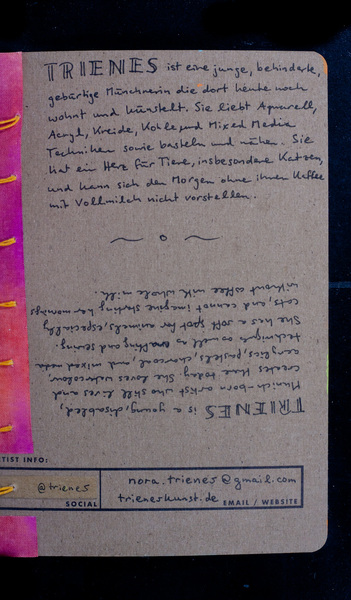 TRIENES ist eine junge, behinderte,
gebürtige Münchnerin die dort heute noch
wohnt und künstelt. Sie liebt Aquarell,
Acryl, Kreide, Kohle und Mixed Media
Techniken sowie basteln und nähen. Sie
hat ein Herz für Tiere, insbesondere Katzen,
und kann sich den Morgen ohne ihren Kaffee
mit Vollmilch nicht vorstellen.
TRIENES is a young, disabled,
Munich-born artist who still lives and
creates there today. She loves watercolour,
acrylics, pastels, charcoal, and mixed media
technique as well as crafting and sewing.
She has a soft spot for animals, especially
cats, and cannot imagine starting her mornings
without coffee with whole milk.
TIST INFO:
@trienes
SOCIAL
nora.trienes@gmail.com
trieneskunst.de
EMAIL / WEBSITE